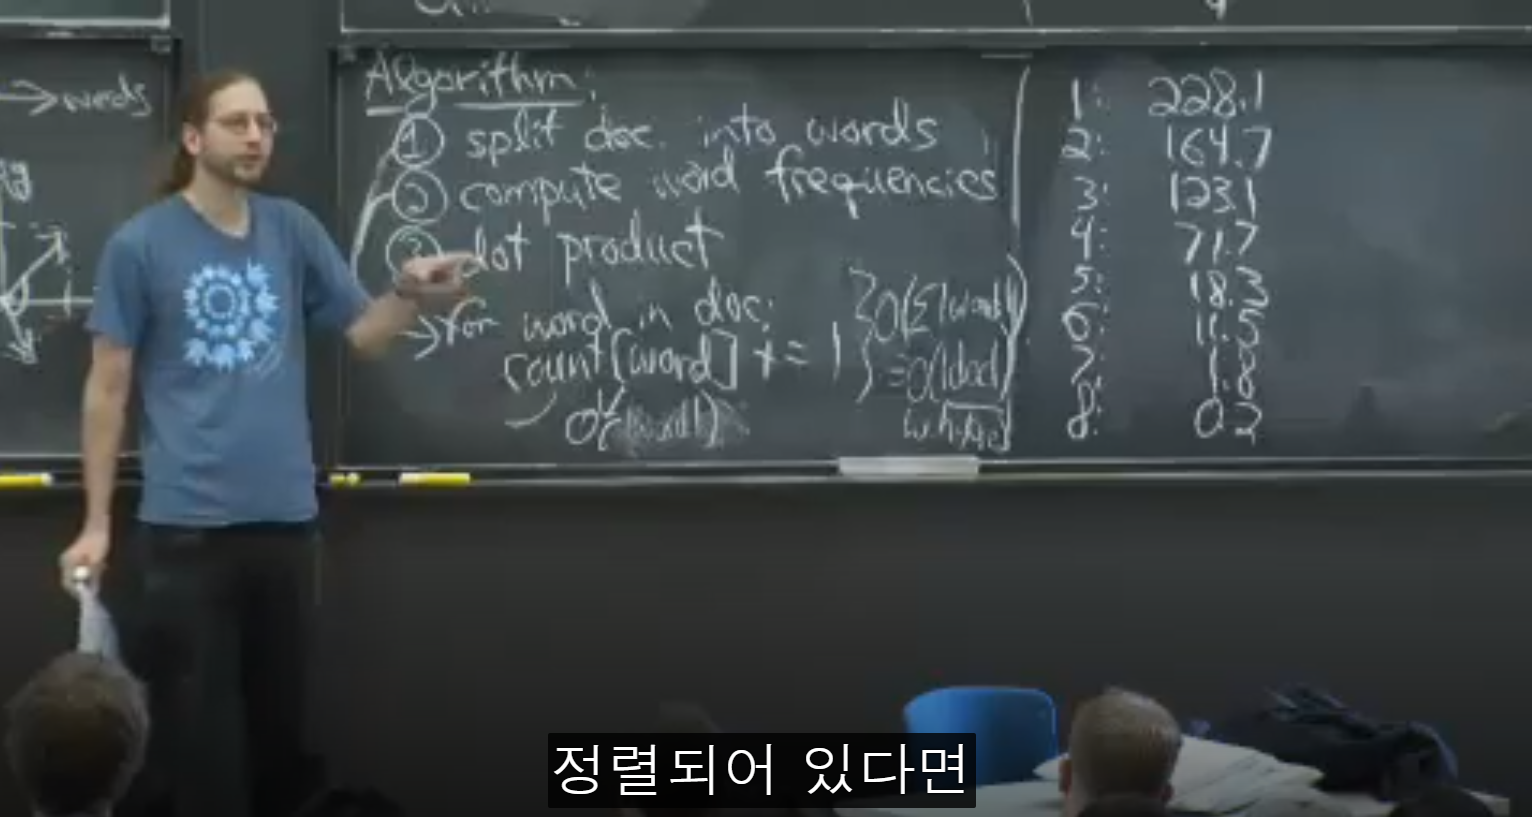 →words
Algorithm:
① split doc. into words
② compute word frequencies
③ dot product
→for word in doc:
count[word] += 1
O(Σ|word|)
=O(|doc|)
O(|word|)
1: 228.1
2: 164.7
3: 123.1
4: 71.7
5: 18.3
6: 11.5
7: 1.8
8: 0.2
정렬되어 있다면